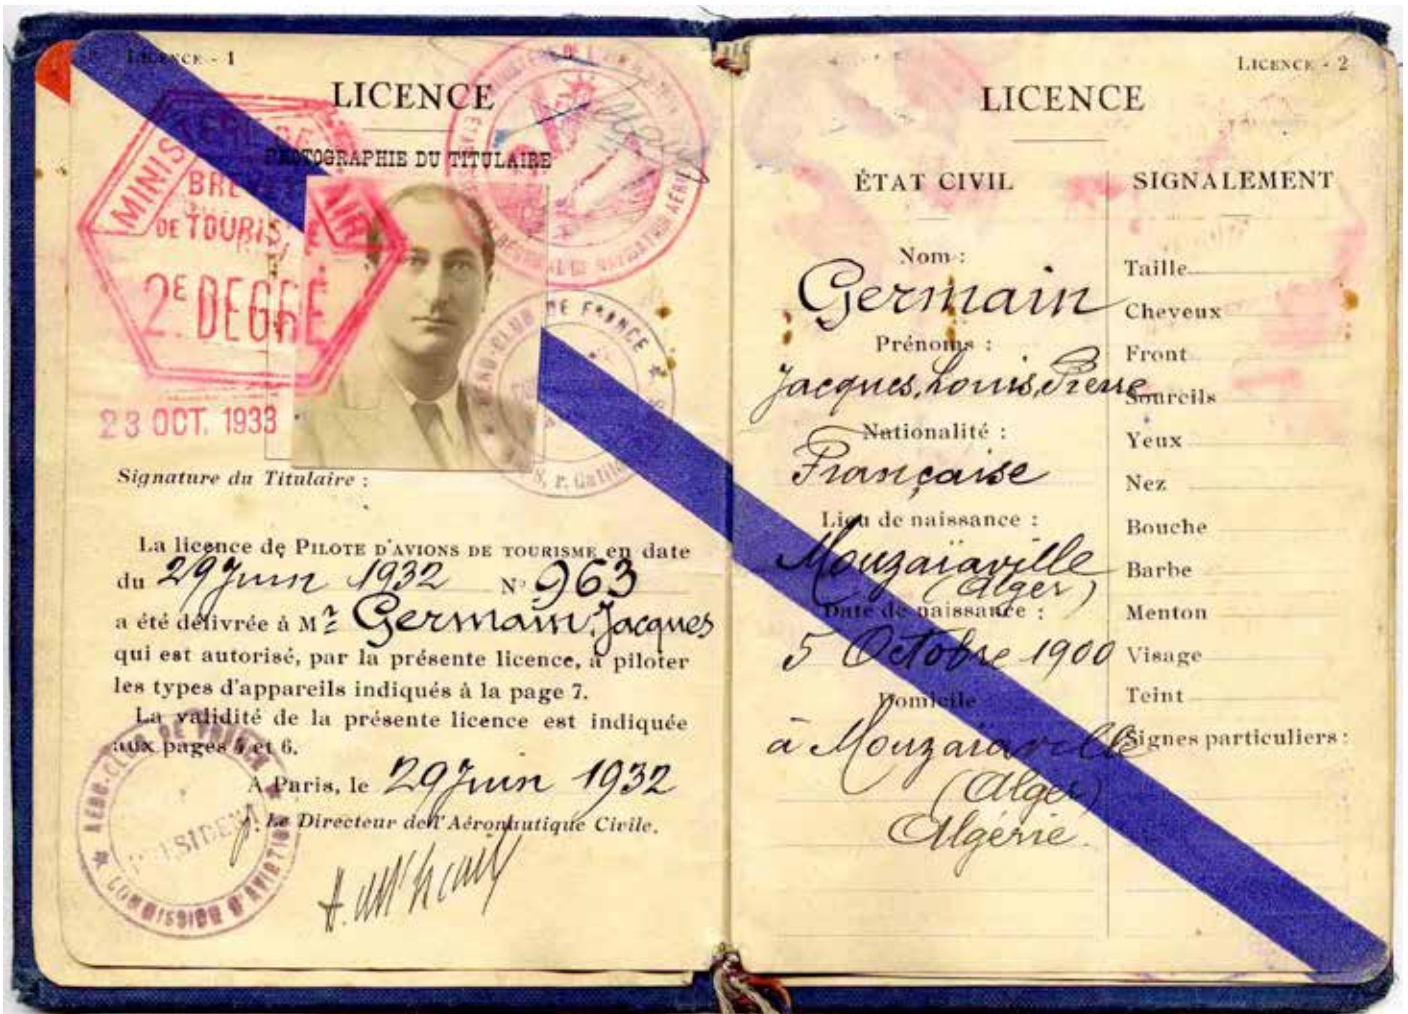 LICENCE - 1
LICENCE
PHOTOGRAPHIE DU TITULAIRE
MINISTÈRE DE L'AIR
BREVET
DE TOURISME
2E DEGRÉ
23 OCT. 1933
AERO-CLUB DE FRANCE
Signature du Titulaire :
La licence de PILOTE D'AVIONS DE TOURISME en date
du 29 Juin 1932 No 963
a été délivrée à Mr Germain Jacques
qui est autorisé, par la présente licence, à piloter
les types d'appareils indiqués à la page 7.
La validité de la présente licence est indiquée
aux pages 5 et 6.
A Paris, le 29 Juin 1932
p. Le Directeur de l'Aéronautique Civile.
AERO-CLUB DE FRANCE
PRESIDENT
COMMISSION D'AVIATION
LICENCE - 2
LICENCE
ÉTAT CIVIL
Nom :
Germain
Prénoms :
Jacques, Louis, Pierre
Nationalité :
Française
Lieu de naissance :
Mouzaïaville
(Alger)
Date de naissance :
5 Octobre 1900
Domicile
à Mouzaïaville
(Alger)
Algérie.
SIGNALEMENT
Taille
Cheveux
Front
Sourcils
Yeux
Nez
Bouche
Barbe
Menton
Visage
Teint
Signes particuliers :